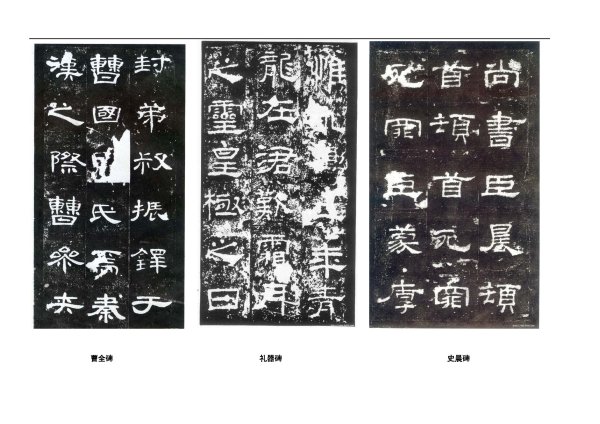 封弟叔振鐸于
曹國氏焉秦
漢之際曹參夾
惟年青
龍在涒歎霜月
之靈皇極之日
尚書臣晨頓
首頓首死罪
死罪臣蒙厚
曹全碑
礼器碑
史晨碑